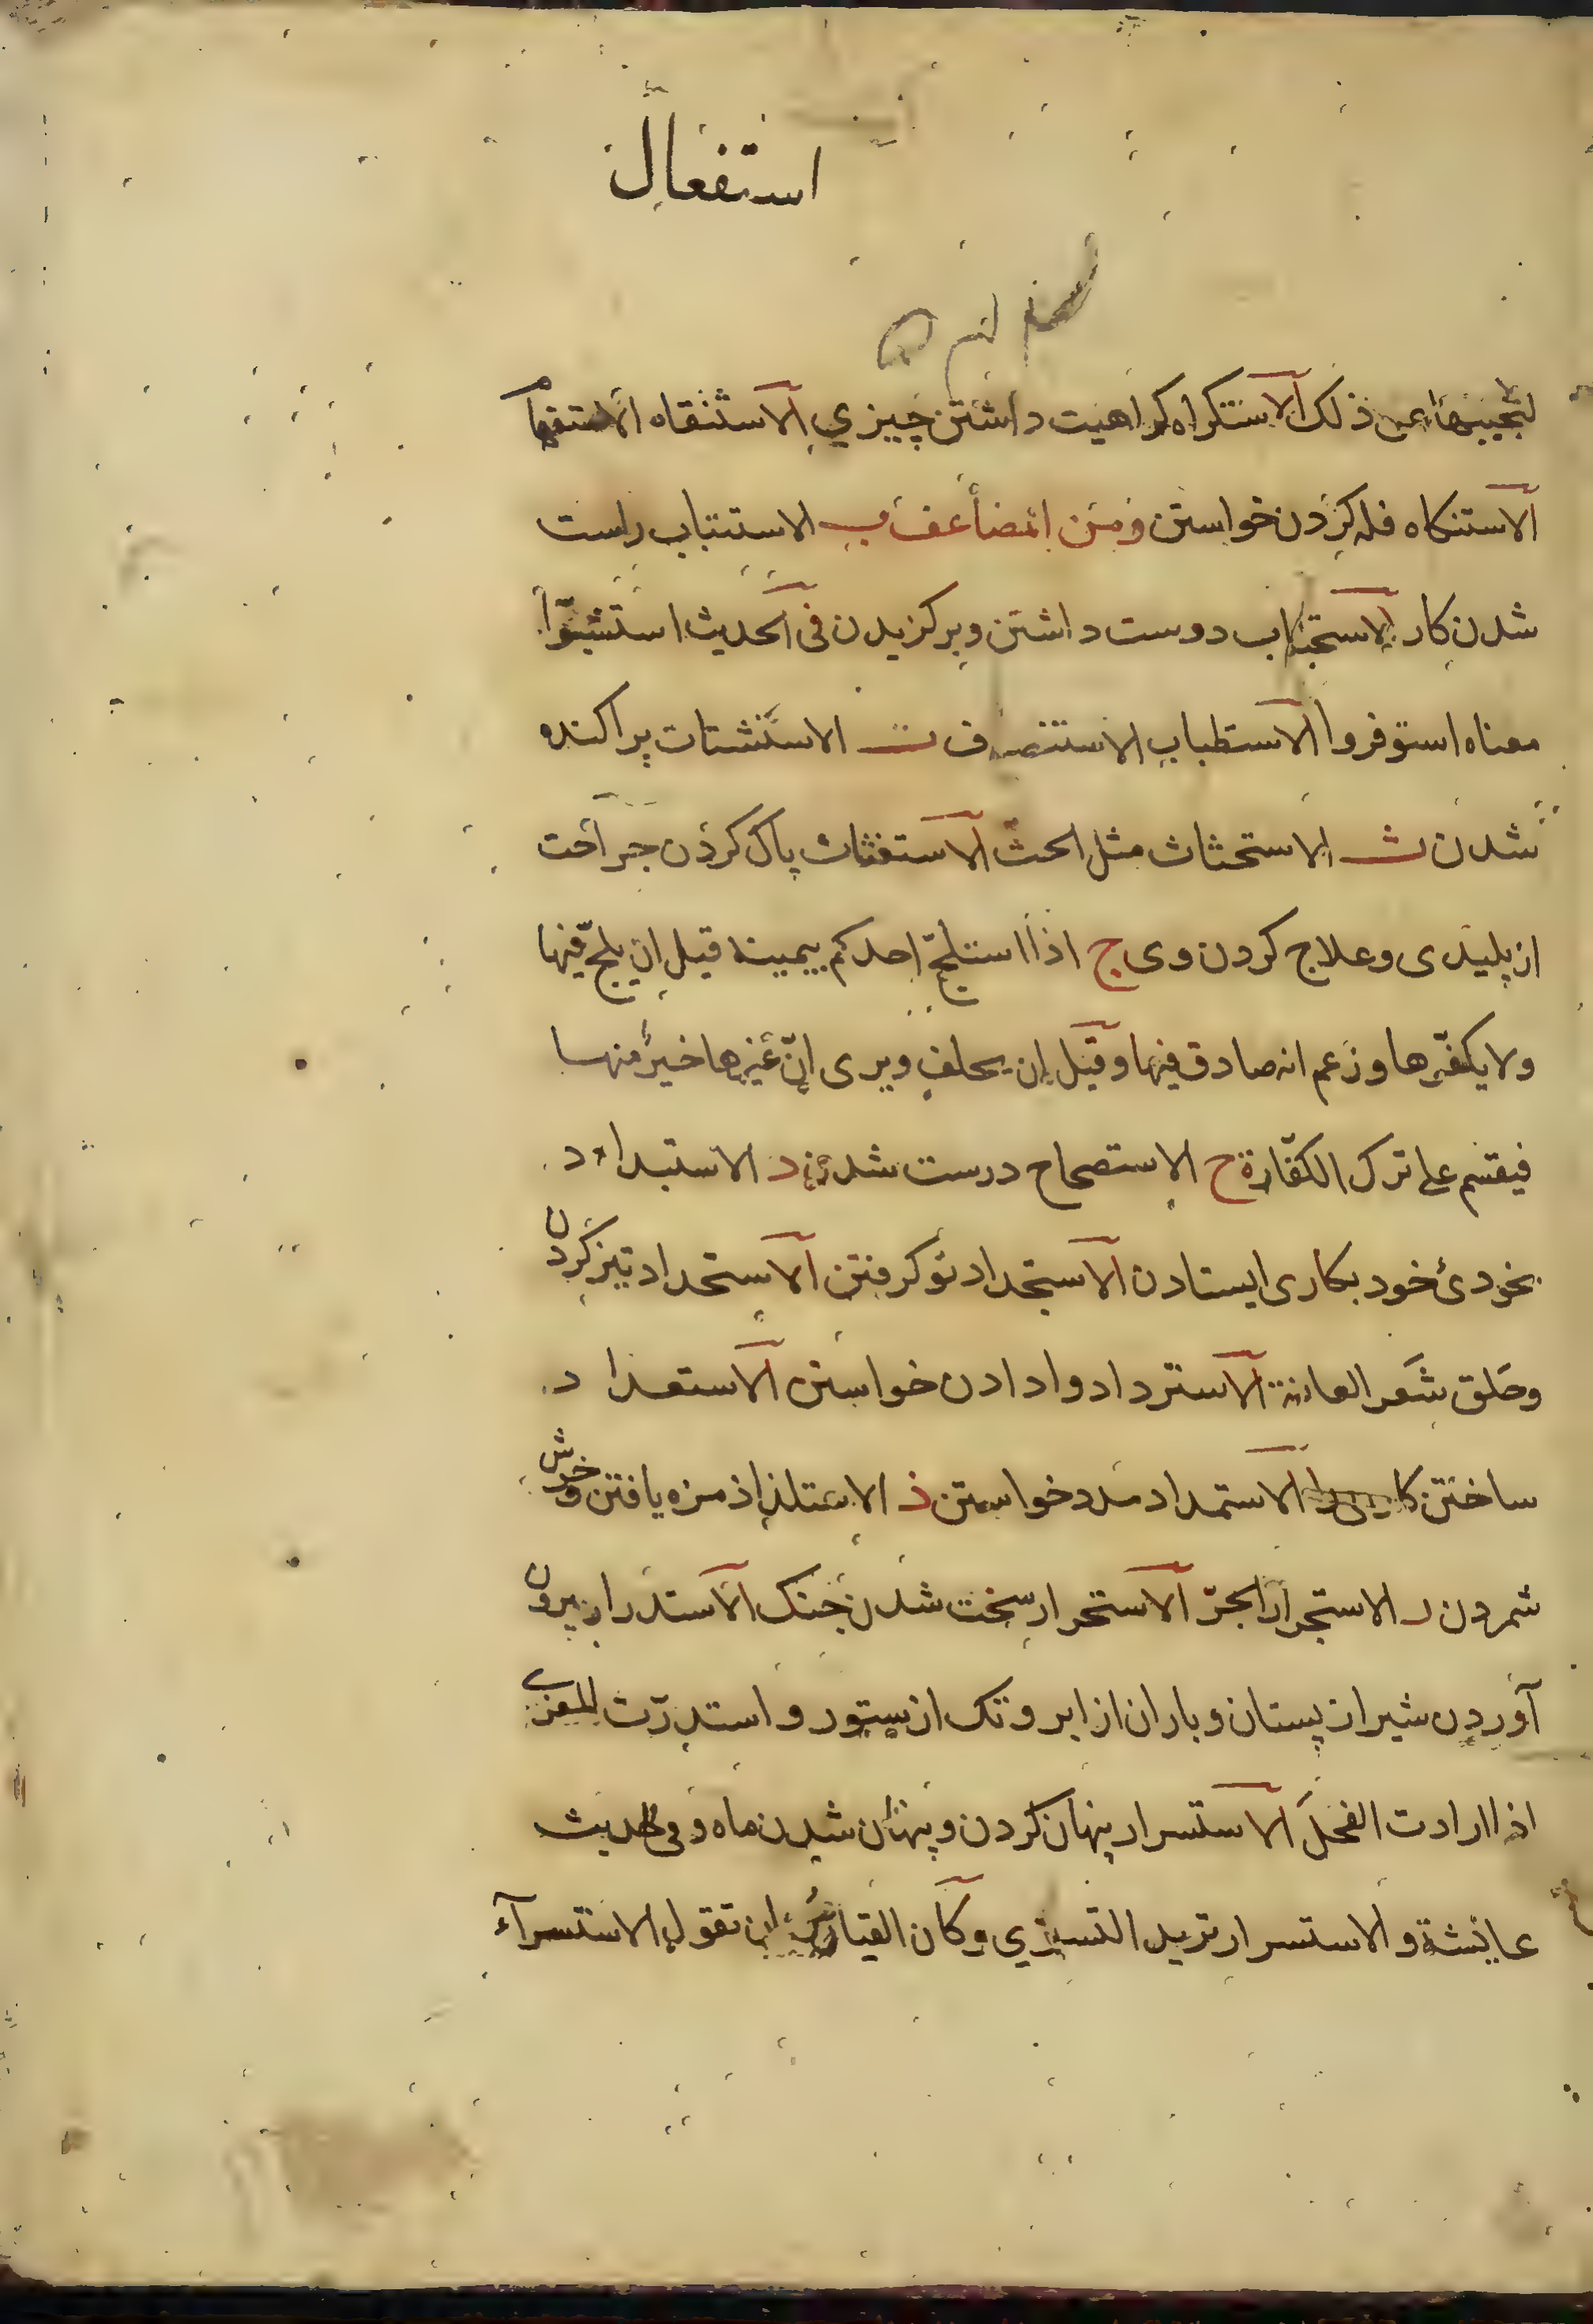 استفعال
ذلك الاستكراه كراهيت داشتن چيزي الاستنقاه الاستفهام
الاستنكاه فله كردن خواستن ومن المضاعف ب الاستتباب راست
شدن كار الاستحباب دوست داشتن وبركزيدن فى الحديث استشبّوا
معناه استوفزوا الاستطباب ت الاستشتات پراكنده
شدن ث الاستحثاث مثل الحثّ الاستغثاث پاك كردن جراحت
از پليدى وعلاج كردن وى ج اذا استلجّ احدكم بيمينه قيل ان يلجّ فيها
ولا يكفّرها وزعم انه صادق فيها وقيل ان يحلف ويرى انّ غيرها خير منها
فيقيم على ترك الكفّارة ح الاستصحاح درست شدن د الاستبداد
بخودئ خود بكارى ايستادن الاستجداد نو كرفتن الاستحداد تيز كردن
وحلق شعر العانة الاسترداد وادادن خواستن الاستعداد
ساختن كاريرا الاستمداد مدد خواستن ذ الاستلذاذ مزه يافتن وخوش
شمردن ر الاستجرار الجرّ الاستحرار سخت شدن جنك الاستدرار بيرون
آوردن شير از پستان وباران از ابر وتك از ستور واستدرّت المعزى
اذا ارادت الفحل الاستسرار پنهان كردن وپنهان شدن ماه وفى الحديث
عائشة والاستسرار تريد التسرّي وكان القياس ان تقول الاستسرآء